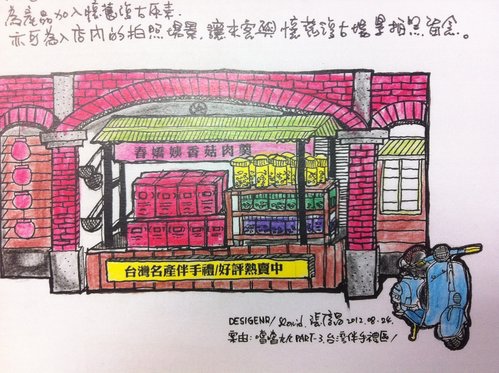 為產品加入懷舊復古元素.
亦可為入店內的拍照場景,讓來客與懷舊復古場景拍照留念。
春嬌姨香菇肉羹
台灣名產伴手禮/好評熱賣中
DESIGENR/ David. 張 2012.08.24.
案由: PART-3.台灣伴手禮區/